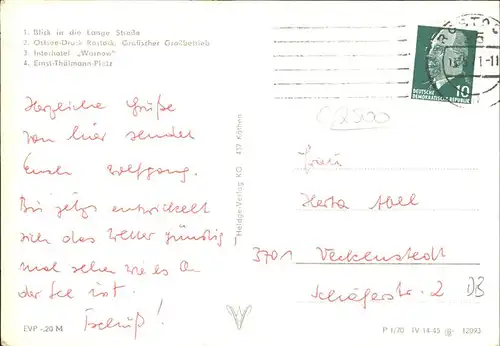 1. Blick in die Lange Straße
2. Ostsee-Druck Rostock, Grafischer Großbetrieb
3. Interhotel „Warnow"
4. Ernst-Thälmann-Platz
Herzliche Grüße
von hier sendet
Euch Wolfgang.
Bis jetzt entwickelt
sich das Wetter günstig
mal sehen wie es a
der See ist.
Tschüß!
EVP -.20 M
Heldge-Verlag KG 437 Köthen
ROSTOC
10
DEUTSCHE
DEMOKRATISCHE REPUBLIK
Frau
Herta Abel
3701 Veckenstedt
Schäferstr. 2
DB
P 1/70 IV-14-45 12093